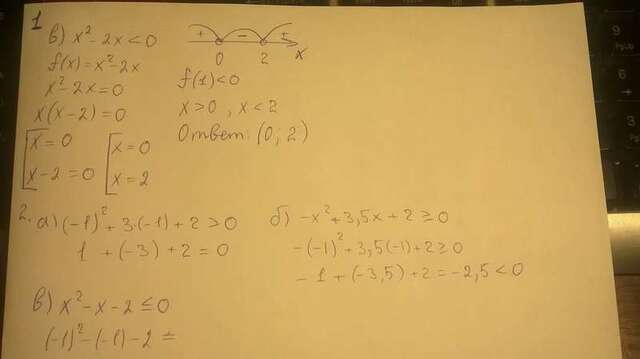 1
в) x² - 2x < 0
f(x) = x² - 2x
x² - 2x = 0
x(x - 2) = 0
[x = 0 [x = 0
x - 2 = 0 x = 2
+ - +
0 2 x
f(1) < 0
x > 0 , x < 2
Ответ: (0; 2)
2. а) (-1)² + 3·(-1) + 2 > 0
1 + (-3) + 2 = 0
б) -x² + 3,5x + 2 ≥ 0
-(-1)² + 3,5(-1) + 2 ≥ 0
-1 + (-3,5) + 2 = -2,5 < 0
в) x² - x - 2 ≤ 0
(-1)² - (-1) - 2 =